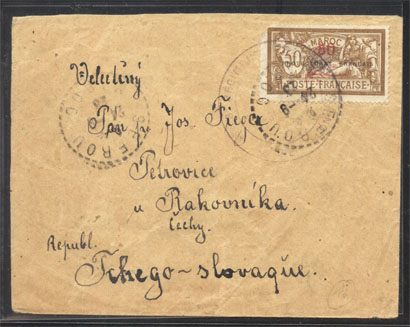 MAROC
50
POSTE FRANÇAISE
Velectěný
Pan
Jos
Petrovice
u Rakovníka
Čechy.
Republ.
Tchego-slovaque.